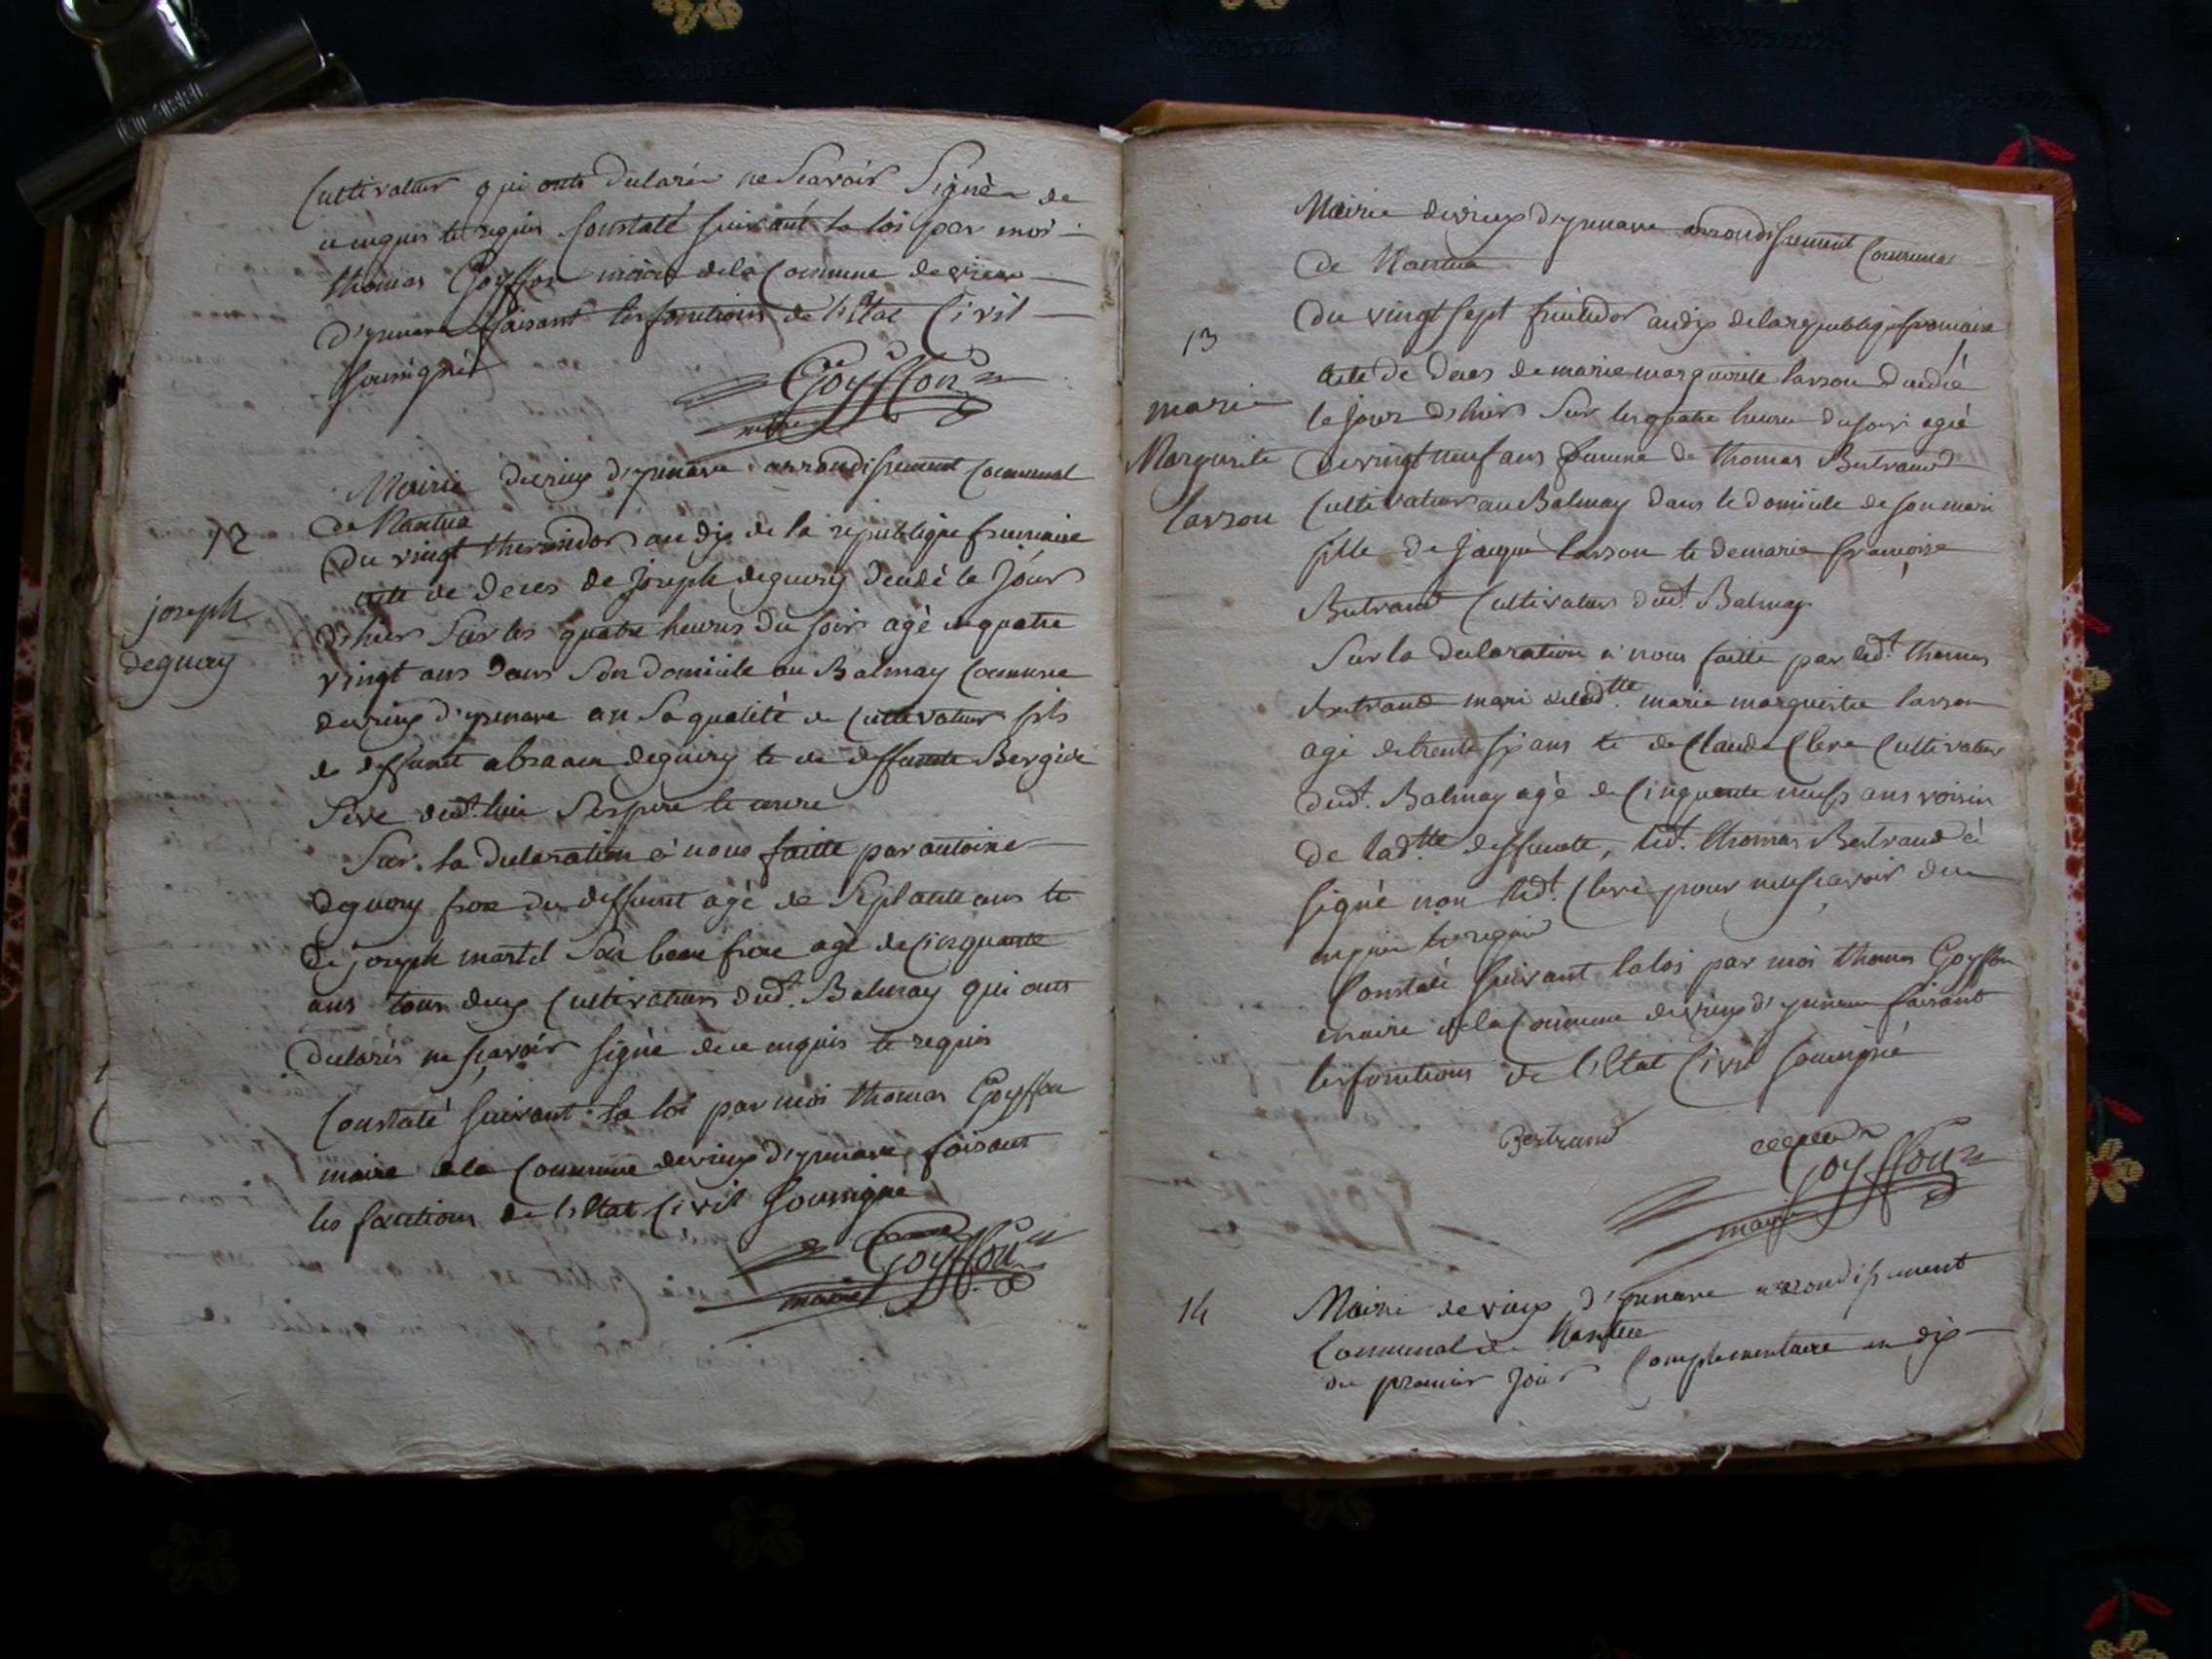 Cultivateur qui onts declarés ne scavoir signè de
ce enquis et requis Constaté suivant la loi par moi
thomas Goyffon maire de la Commune de vieux
d'yzenave faisant les fonctions de l'Etat Civil
soussigné
Goyffon
maire
Mairie de vieux d'yzenave arrondissement Communal
de Nantua
12
Du vingt thermidor an dix de la republique francaise
acte de deces de Joseph deguery decedè le jour
joseph
deguery
d'hier sur les quatre heures du soir agè de quatre
vingt ans dans son domicile au Balmay Commune
de vieux d'yzenave en sa qualité de Cultivateur fils
de deffunt abraam deguery et de deffunte
dud.t lieu
Sur la declaration à nous faitte par antoine
deguery frere du deffunt agé de septante ans et
de joseph martel son beau frere agè de Cinquante
ans tous deux Cultivateurs dud.t Balmay qui onts
declarés ne sçavoir signè de ce enquis et requis
Constaté suivant la loi par moi thomas Goyffon
maire de la Commune de vieux d'yzenave, faisant
les fonctions de l'Etat Civil soussigné
Goyffon
maire
Mairie de vieux d'yzenave arrondissement Communal
de Nantua
13
Du vingt sept fructidor an dix de la republique francaise
acte de deces de marie marguerite larson decedée
marie
le jour d'hier sur les quatre heures du soir agée
Marguerite
de vingt neuf ans femme de thomas Bertrand
larson
Cultivateur au Balmay dans le domicile de son mari
fille de jacque larson et de marie françoise
Bertrand Cultivateur dud.t Balmay
Sur la declaration à nous faitte par led.t thomas
Bertrand mari de lad.tte marie marguerite larson
agé de trente six ans et de Claude Clere Cultivateur
dud.t Balmay agè de Cinquante neufs ans voisin
de lad.tte deffunte, led.t thomas Bertrand à
signè non led.t Clere pour ne sçavoir de ce
enquis et requis
Constaté suivant la loi par moi thomas Goyffon
maire de la Commune de vieux d'yzenave faisant
les fonctions de l'Etat Civil soussigné
Bertrand
Goyffon
maire
14
Mairie de vieux d'yzenave arrondissement
Communal de Nantua
du premier jour Complementaire an dix